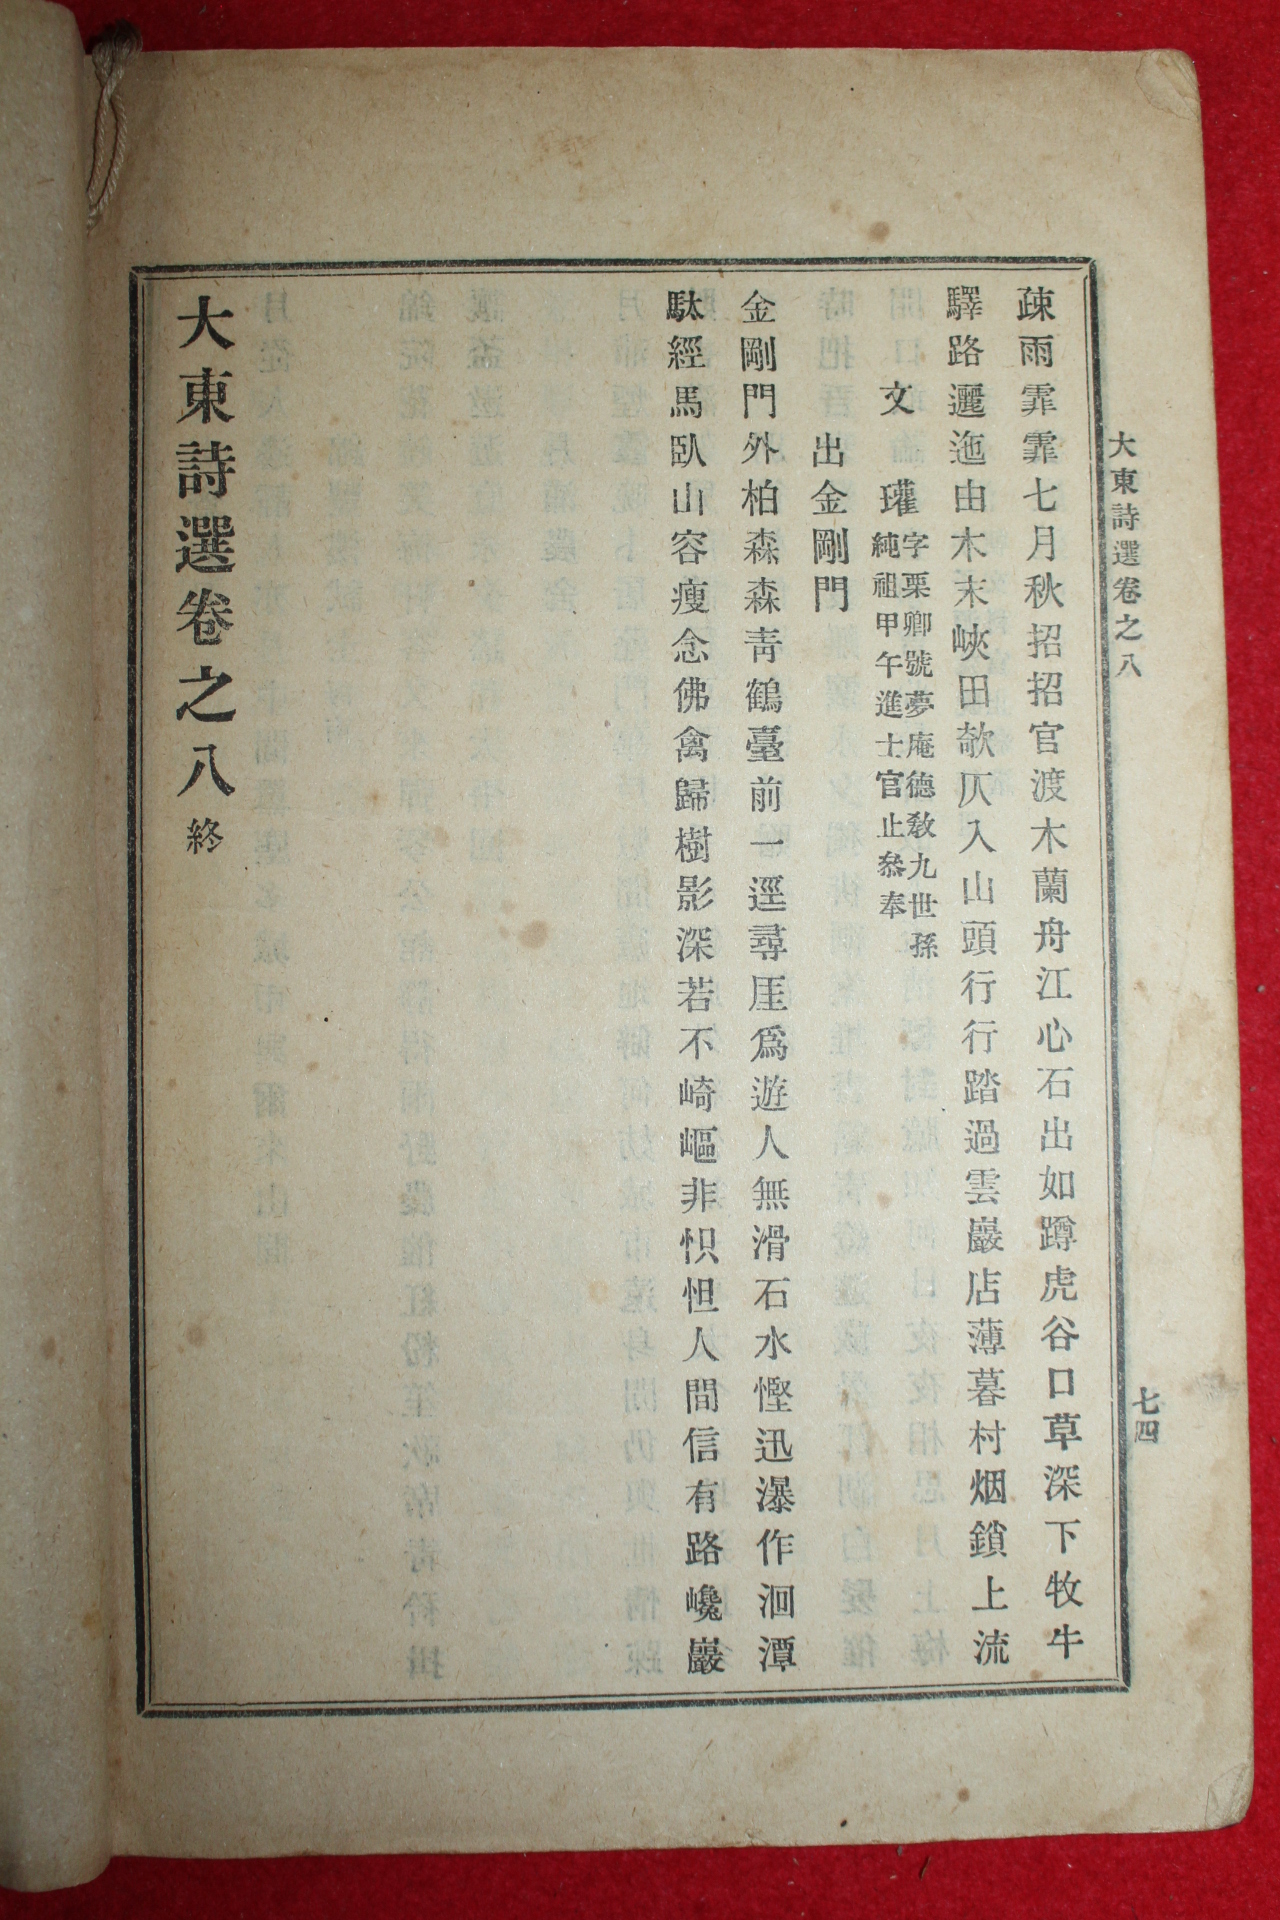 大東詩選卷之八
七四
疎雨霏霏七月秋招招官渡木蘭舟江心石出如蹲虎谷口草深下牧牛
驛路邐迤由木末峽田欹仄入山頭行行踏過雲巖店薄暮村烟鎖上流
文 瓘
字栗卿號夢庵德敎九世孫
純祖甲午進士官止叅奉
出金剛門
金剛門外柏森森靑鶴臺前一逕尋厓爲遊人無滑石水慳迅瀑作洄潭
馱經馬臥山容瘦念佛禽歸樹影深若不崎嶇非怾怛人間信有路巉巖
大東詩選卷之八終